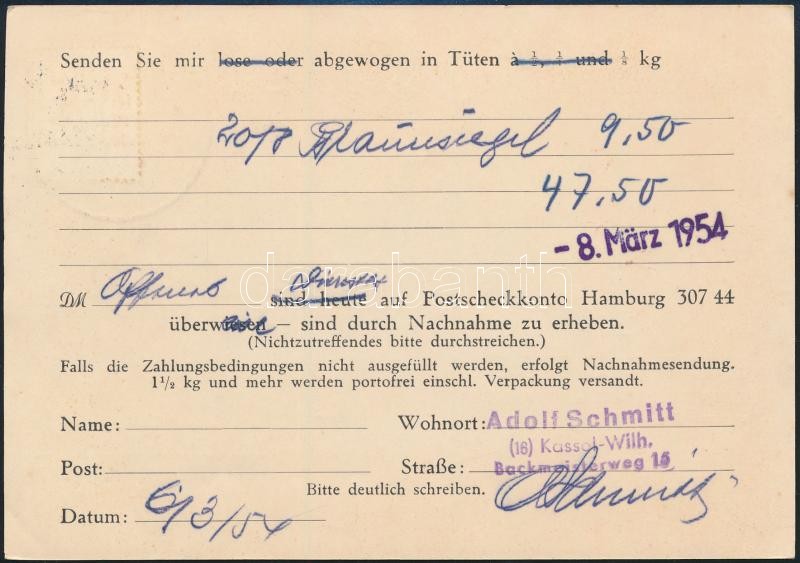 Senden Sie mir lose oder abgewogen in Tüten à ½, ¼ und ⅛ kg
Braunsiegel 9,50
47,50
- 8. März 1954
DM sind heute auf Postscheckkonto Hamburg 307 44
überwiesen — sind durch Nachnahme zu erheben.
(Nichtzutreffendes bitte durchstreichen.)
Falls die Zahlungsbedingungen nicht ausgefüllt werden, erfolgt Nachnahmesendung.
1½ kg und mehr werden portofrei einschl. Verpackung versandt.
Name: Wohnort: Adolf Schmitt
(16) Kassel-Wilh.
Post: Straße: Backmeisterweg 15
Bitte deutlich schreiben. Schmitt
Datum: 6/3/54
darabanth